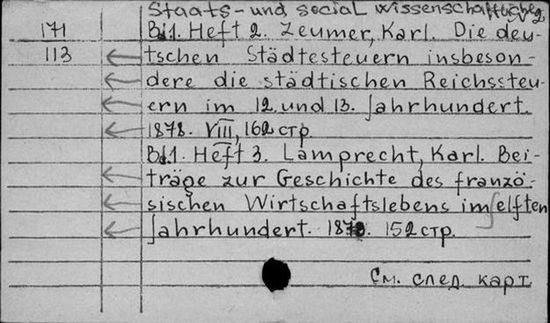 Staats- und social wissenschaftliche
171 Bd.1. Heft 2. Zeumer, Karl. Die deu-
113 tschen Städtesteuern insbeson-
dere die städtischen Reichssteu-
ern im 12. und 13. Jahrhundert.
1878. VIII, 162 стр.
Bd.1. Heft 3. Lamprecht, Karl. Bei-
träge zur Geschichte des franzö-
sischen Wirtschaftslebens im elften
Jahrhundert. 152 стр.
См. след. карт.